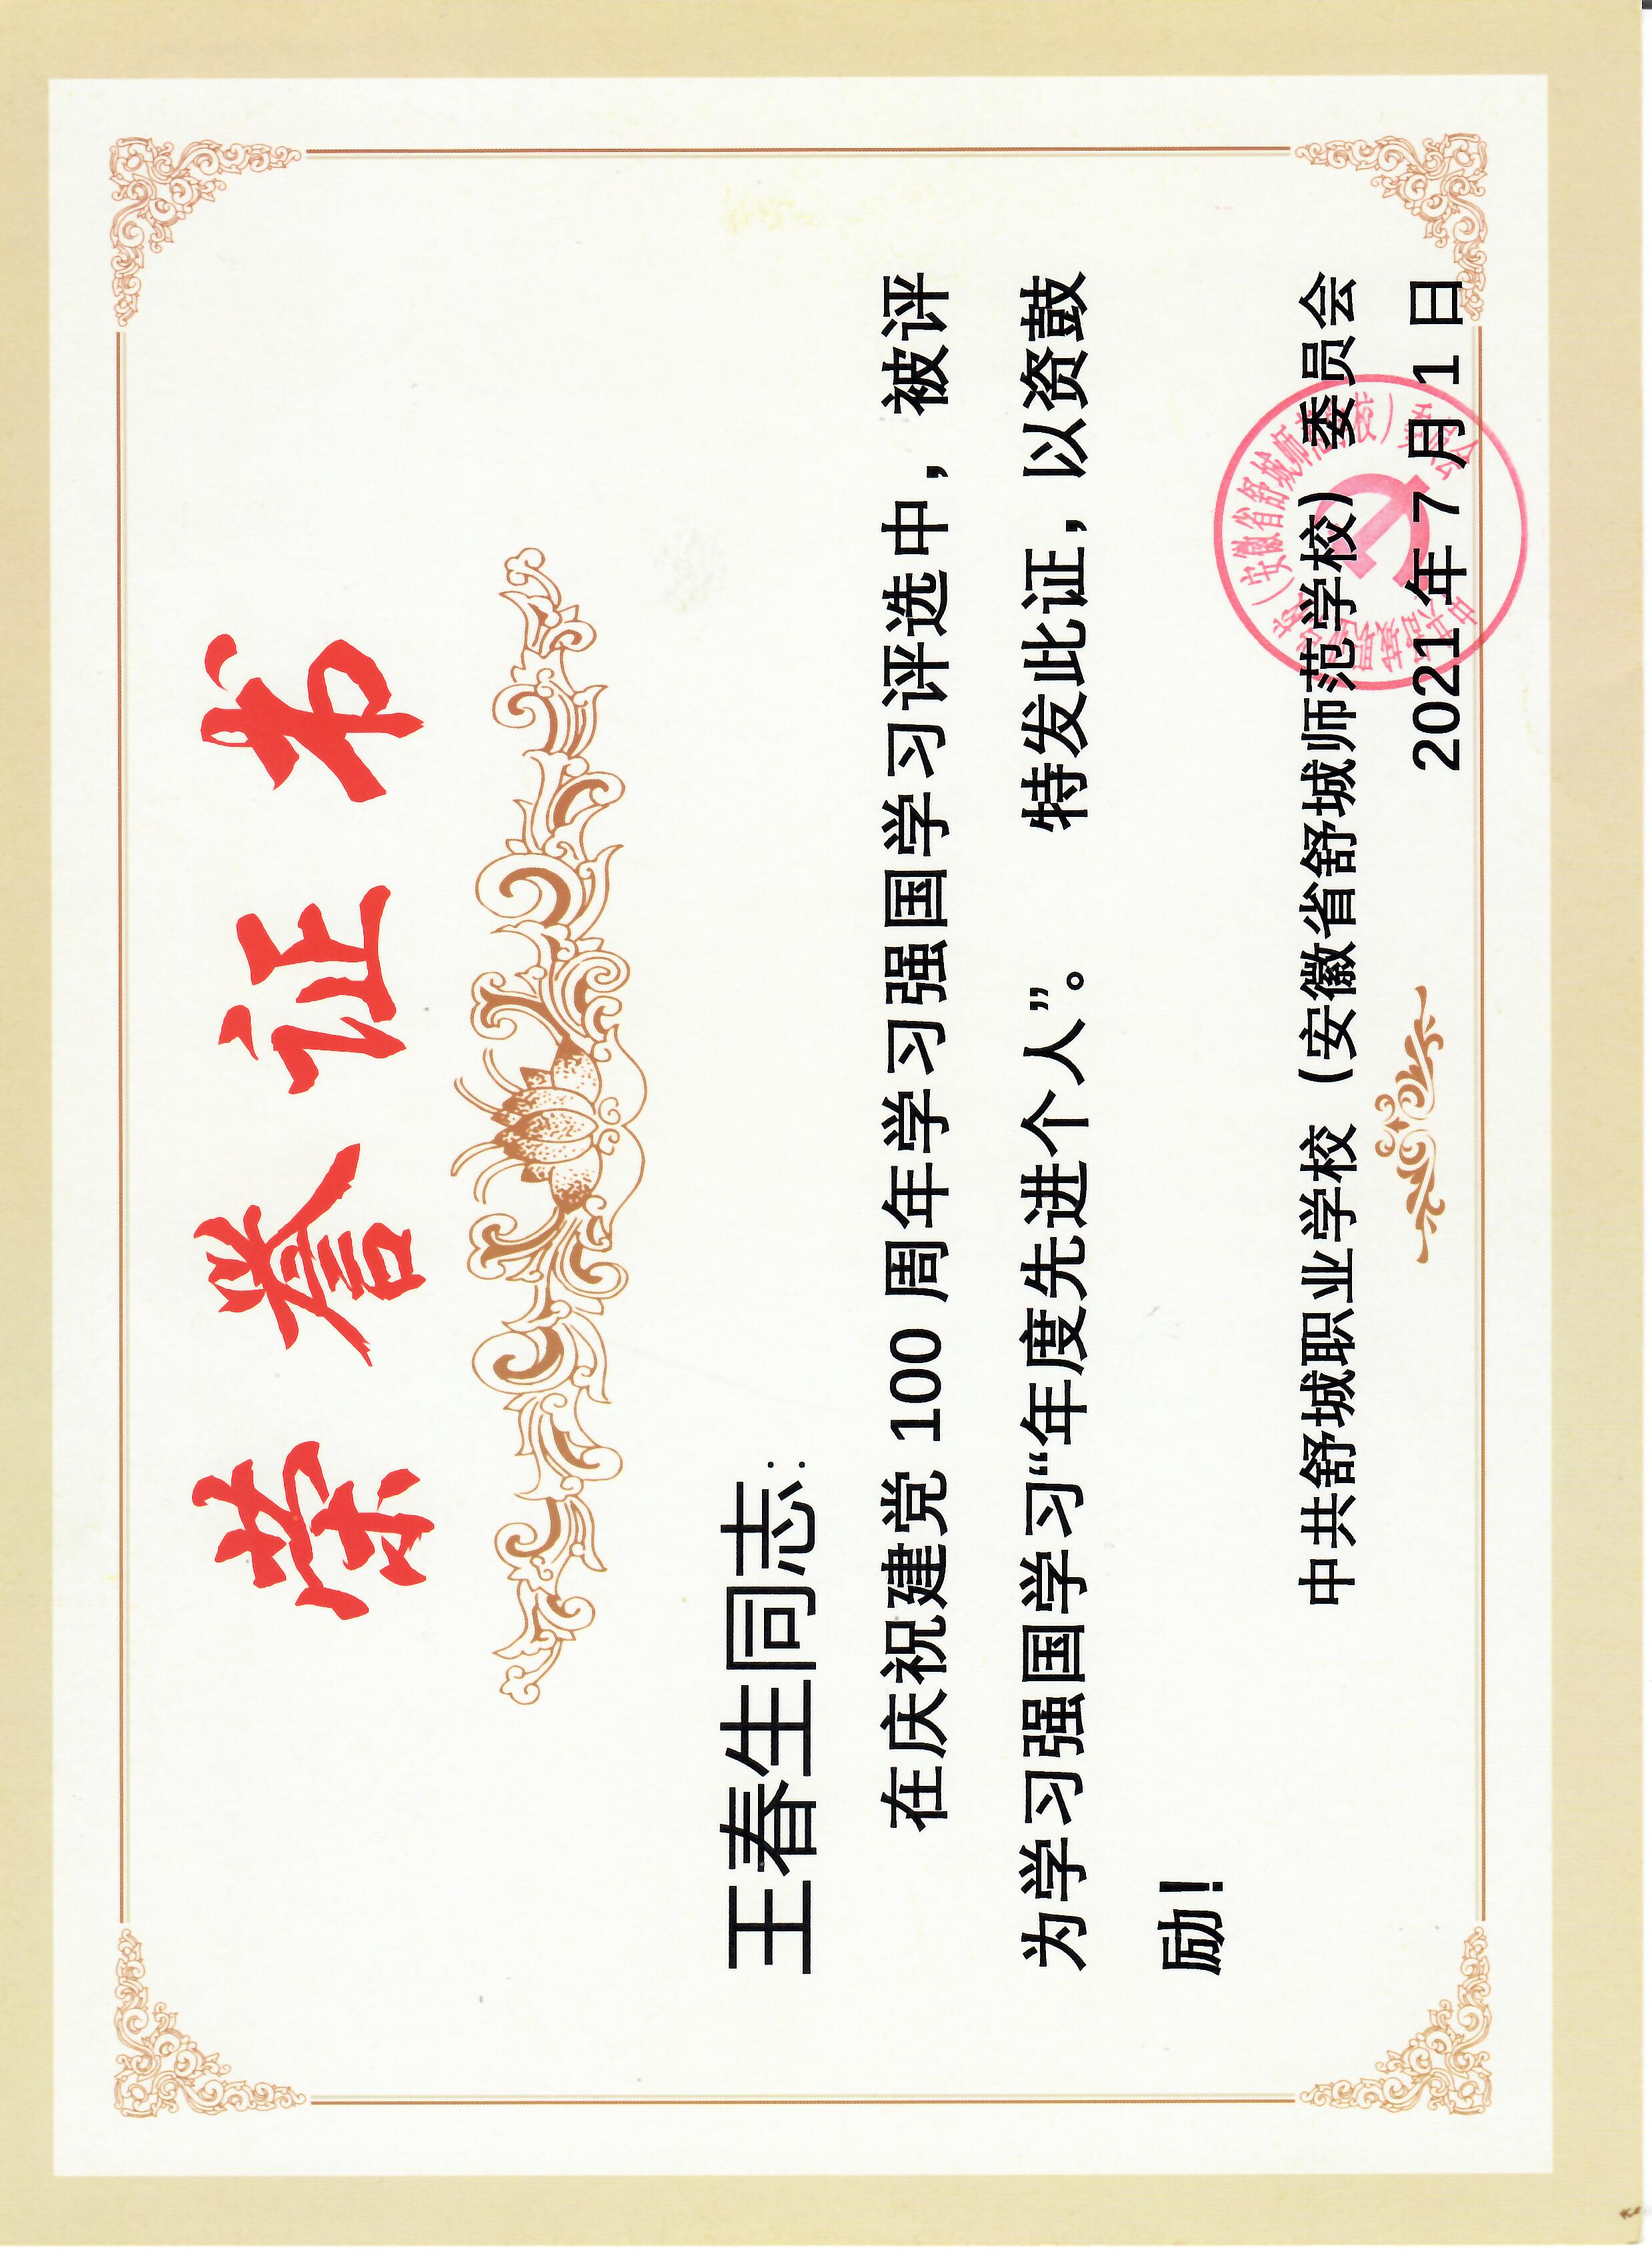 荣誉证书
王春生同志：
在庆祝建党 100 周年学习强国学习评选中，被评
为学习强国学习“年度先进个人”。 特发此证，以资鼓
励！
中共舒城职业学校（安徽省舒城师范学校）委员会
2021 年 7 月 1 日